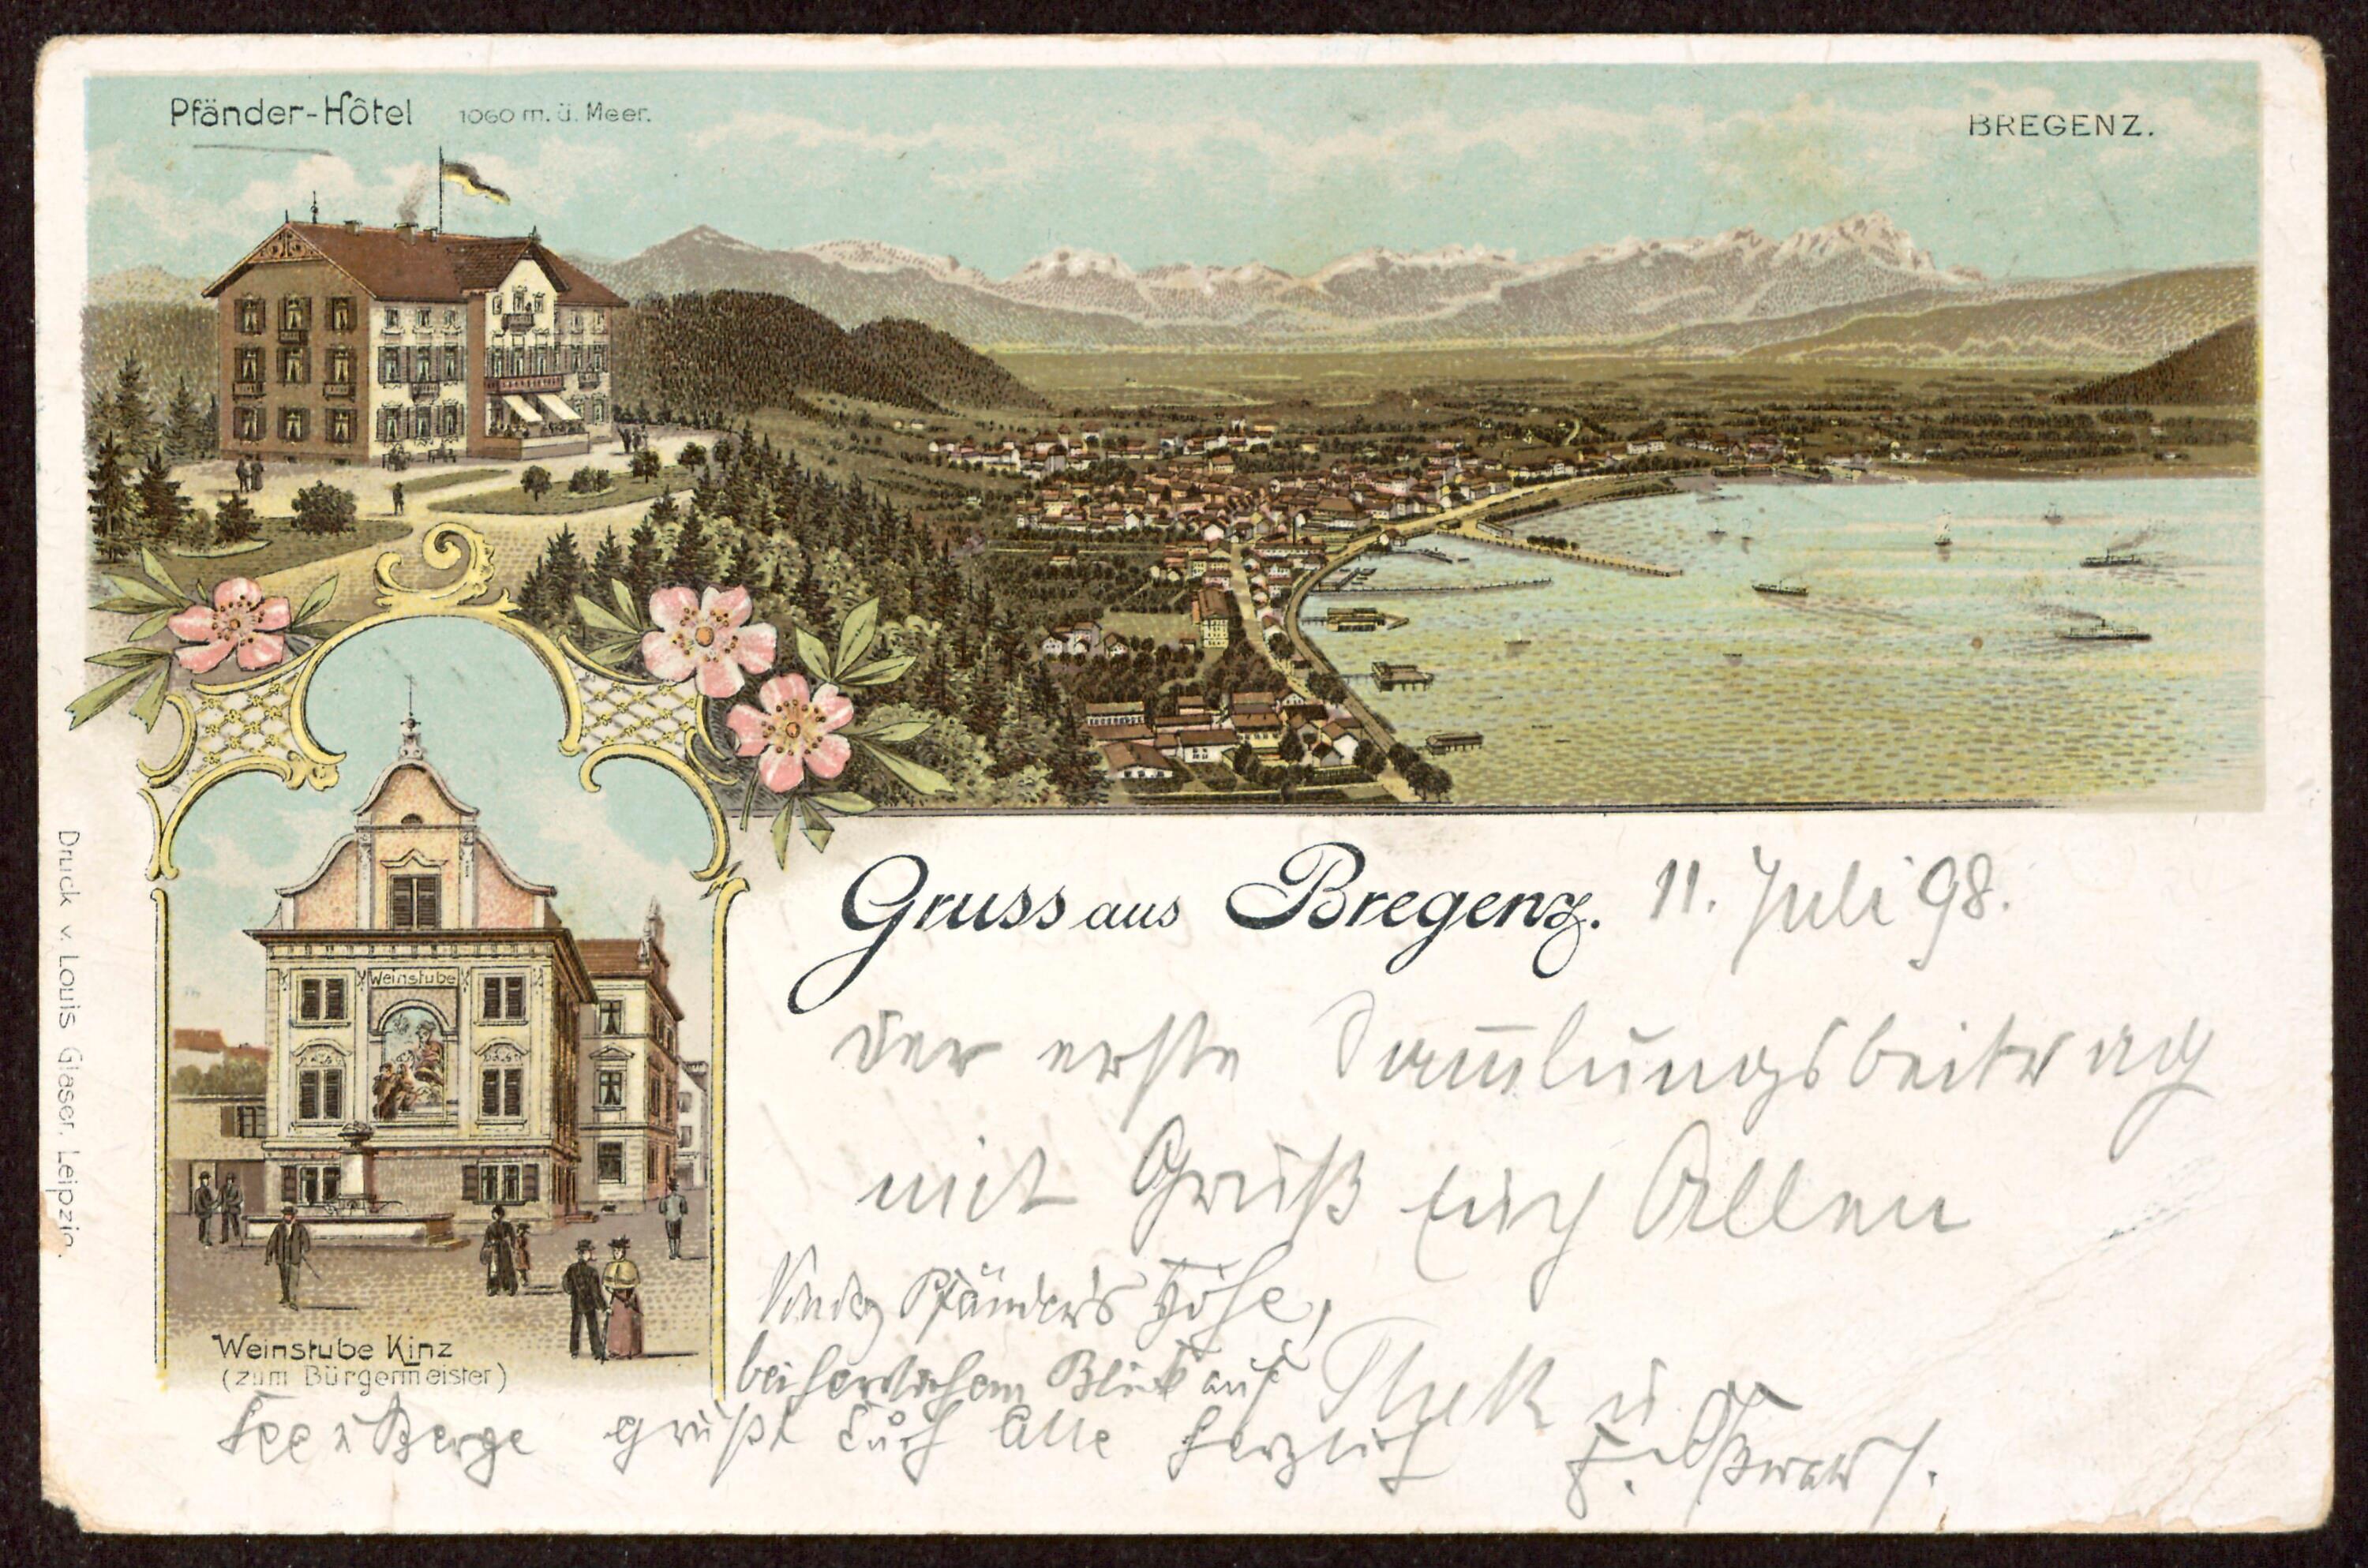 Pfänder-Hôtel 1060 m. ü. Meer.
BREGENZ.
Weinstube
Weinstube Kinz
(zum Bürgermeister)
Druck v. Louis Glaser, Leipzig.
Gruss aus Bregenz. 11. Juli 98.
Der erste Sam̅lungsbeitrag
mit Gruß Euch Allen
Pfänder's Höhe,
bei herrlichem Blick auf
See u Berge grüßt Euch Alle herzlich
u.